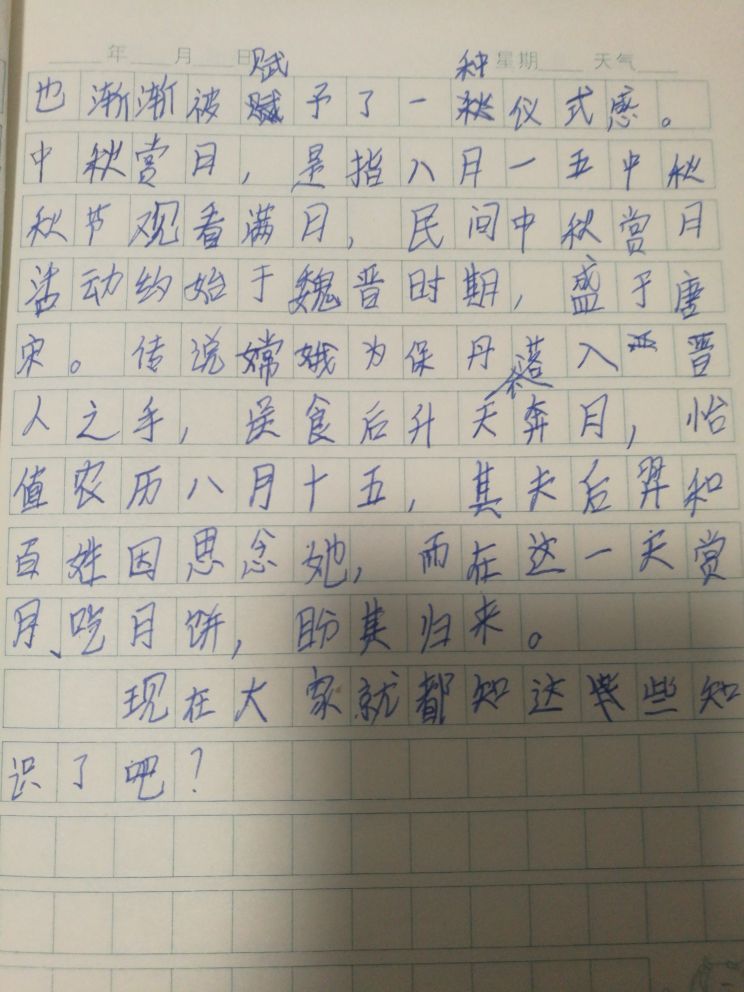 年 月 日 星期 天气
赋 种
也渐渐被予了一仪式感。
中秋赏月，是指八月一五中秋
秋节观看满日，民间中秋赏月
活动约始于魏晋时期，盛于唐
宋。传说嫦娥为保丹落入晋
人之手，误食后升天奔月，恰
值农历八月十五，其夫后羿和
百姓因思念她，而在这一天赏
月、吃月饼，盼其归来。
现在大家就都知这些知
识了吧？